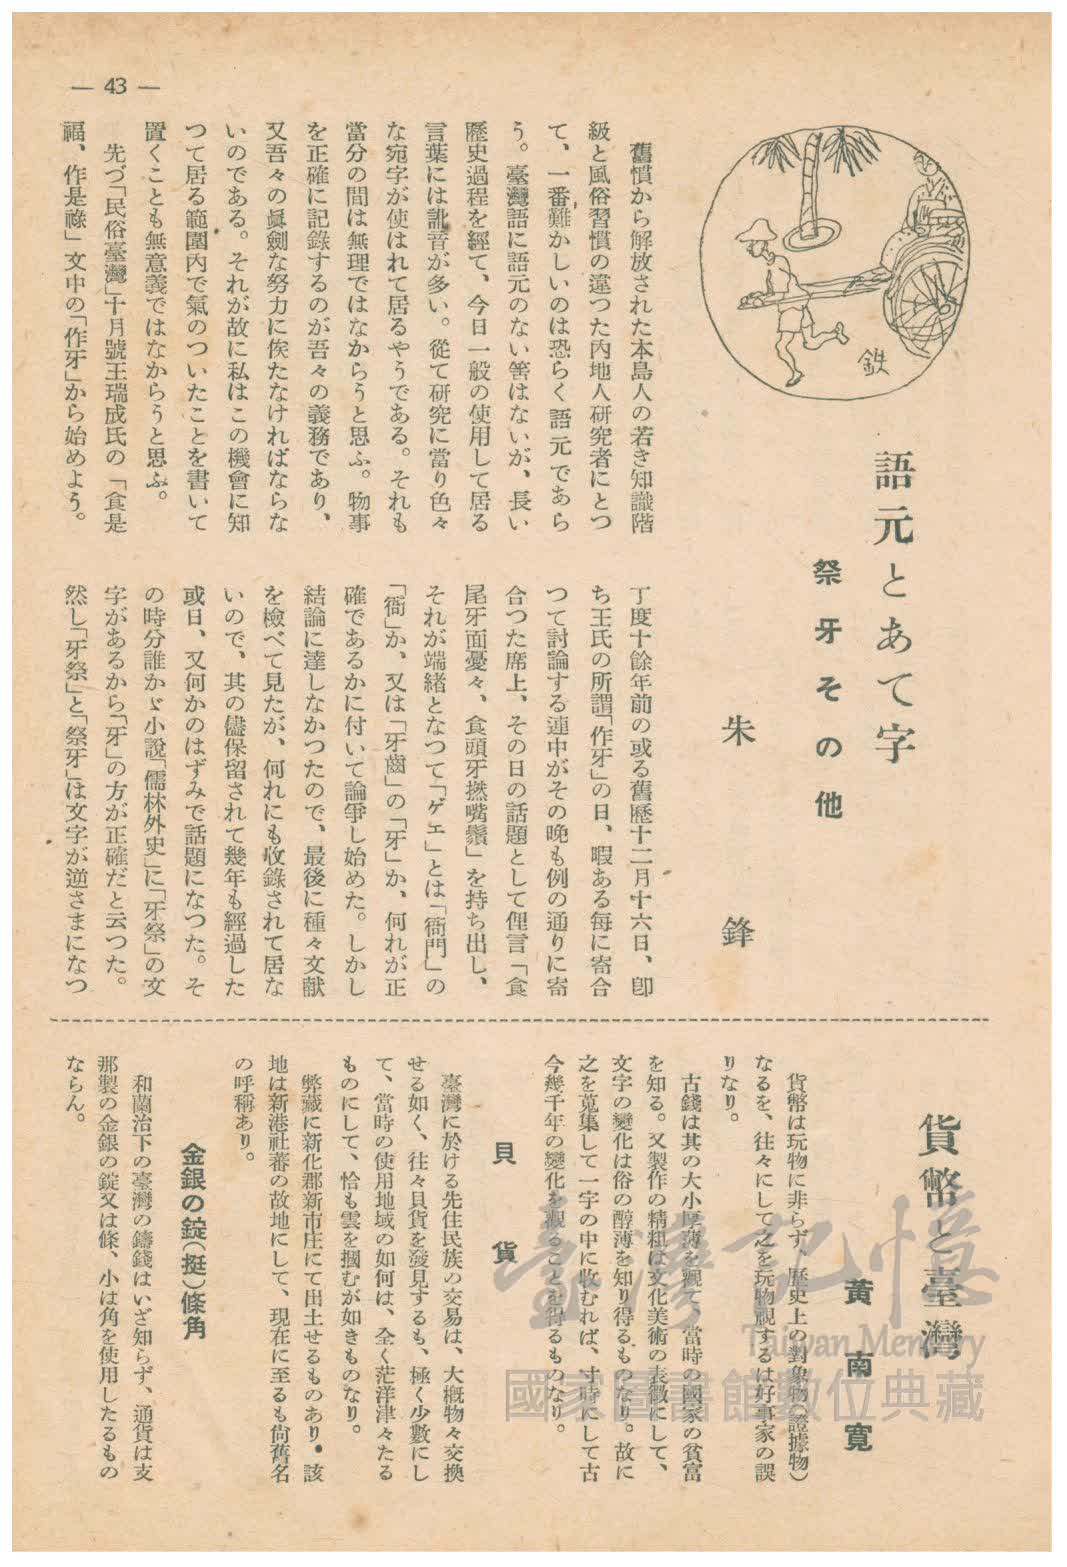 — 43 —
鉄
語元とあて字
祭牙その他
朱鋒
舊慣から解放された本島人の若き知識階
級と風俗習慣の違つた内地人研究者にとつ
て、一番難かしいのは恐らく語元であら
う。臺灣語に語元のない筈はないが、長い
歷史過程を經て、今日一般の使用して居る
言葉には訛音が多い。從て研究に當り色々
な宛字が使はれて居るやうである。それも
當分の間は無理ではなからうと思ふ。物事
を正確に記錄するのが吾々の義務であり、
又吾々の眞劍な努力に俟たなければならな
いのである。それが故に私はこの機會に知
つて居る範圍內で氣のついたことを書いて
置くことも無意義ではなからうと思ふ。
先づ「民俗臺灣」十月號王瑞成氏の「食是
福、作是祿」文中の「作牙」から始めよう。
丁度十餘年前の或る舊歷十二月十六日、卽
ち王氏の所謂「作牙」の日、暇ある每に寄合
つて討論する連中がその晚も例の通りに寄
合つた席上、その日の話題として俚言「食
尾牙面憂々、食頭牙撚嘴鬚」を持ち出し、
それが端緖となつて「ゲエ」とは「衙門」の
「衙」か、又は「牙齒」の「牙」か、何れが正
確であるかに付いて論爭し始めた。しかし
結論に達しなかつたので、最後に種々文献
を檢べて見たが、何れにも收錄されて居な
いので、其の儘保留されて幾年も經過した
或日、又何かのはずみで話題になつた。そ
の時分誰かゞ小說「儒林外史」に「牙祭」の文
字があるから「牙」の方が正確だと云つた。
然し「牙祭」と「祭牙」は文字が逆さまになつ
貨幣と臺灣
黃南寬
貨幣は玩物に非らず、歷史上の對象物(證據物)
なるを、往々にして之を玩物視するは好事家の誤
りなり。
古錢は其の大小厚薄を觀て、當時の國家の貧富
を知る。又製作の精粗は文化美術の表徵にして、
文字の變化は俗の醇薄を知り得るものなり。故に
之を蒐集して一字の中に收むれば、寸時にして古
今幾千年の變化を觀ることを得るものなり。
貝貨
臺灣に於ける先住民族の交易は、大槪物々交換
せる如く、往々貝貨を發見するも、極く少數にし
て、當時の使用地域の如何は、全く茫洋津々たる
ものにして、恰も雲を摑むが如きものなり。
弊藏に新化郡新市庄にて出土せるものあり・該
地は新港社蕃の故地にして、現在に至るも尙舊名
の呼稱あり。
金銀の錠(挺)條角
和蘭治下の臺灣の鑄錢はいざ知らず、通貨は支
那製の金銀の錠又は條、小は角を使用したるもの
ならん。
臺灣記憶
Taiwan Memory
國家圖書館數位典藏